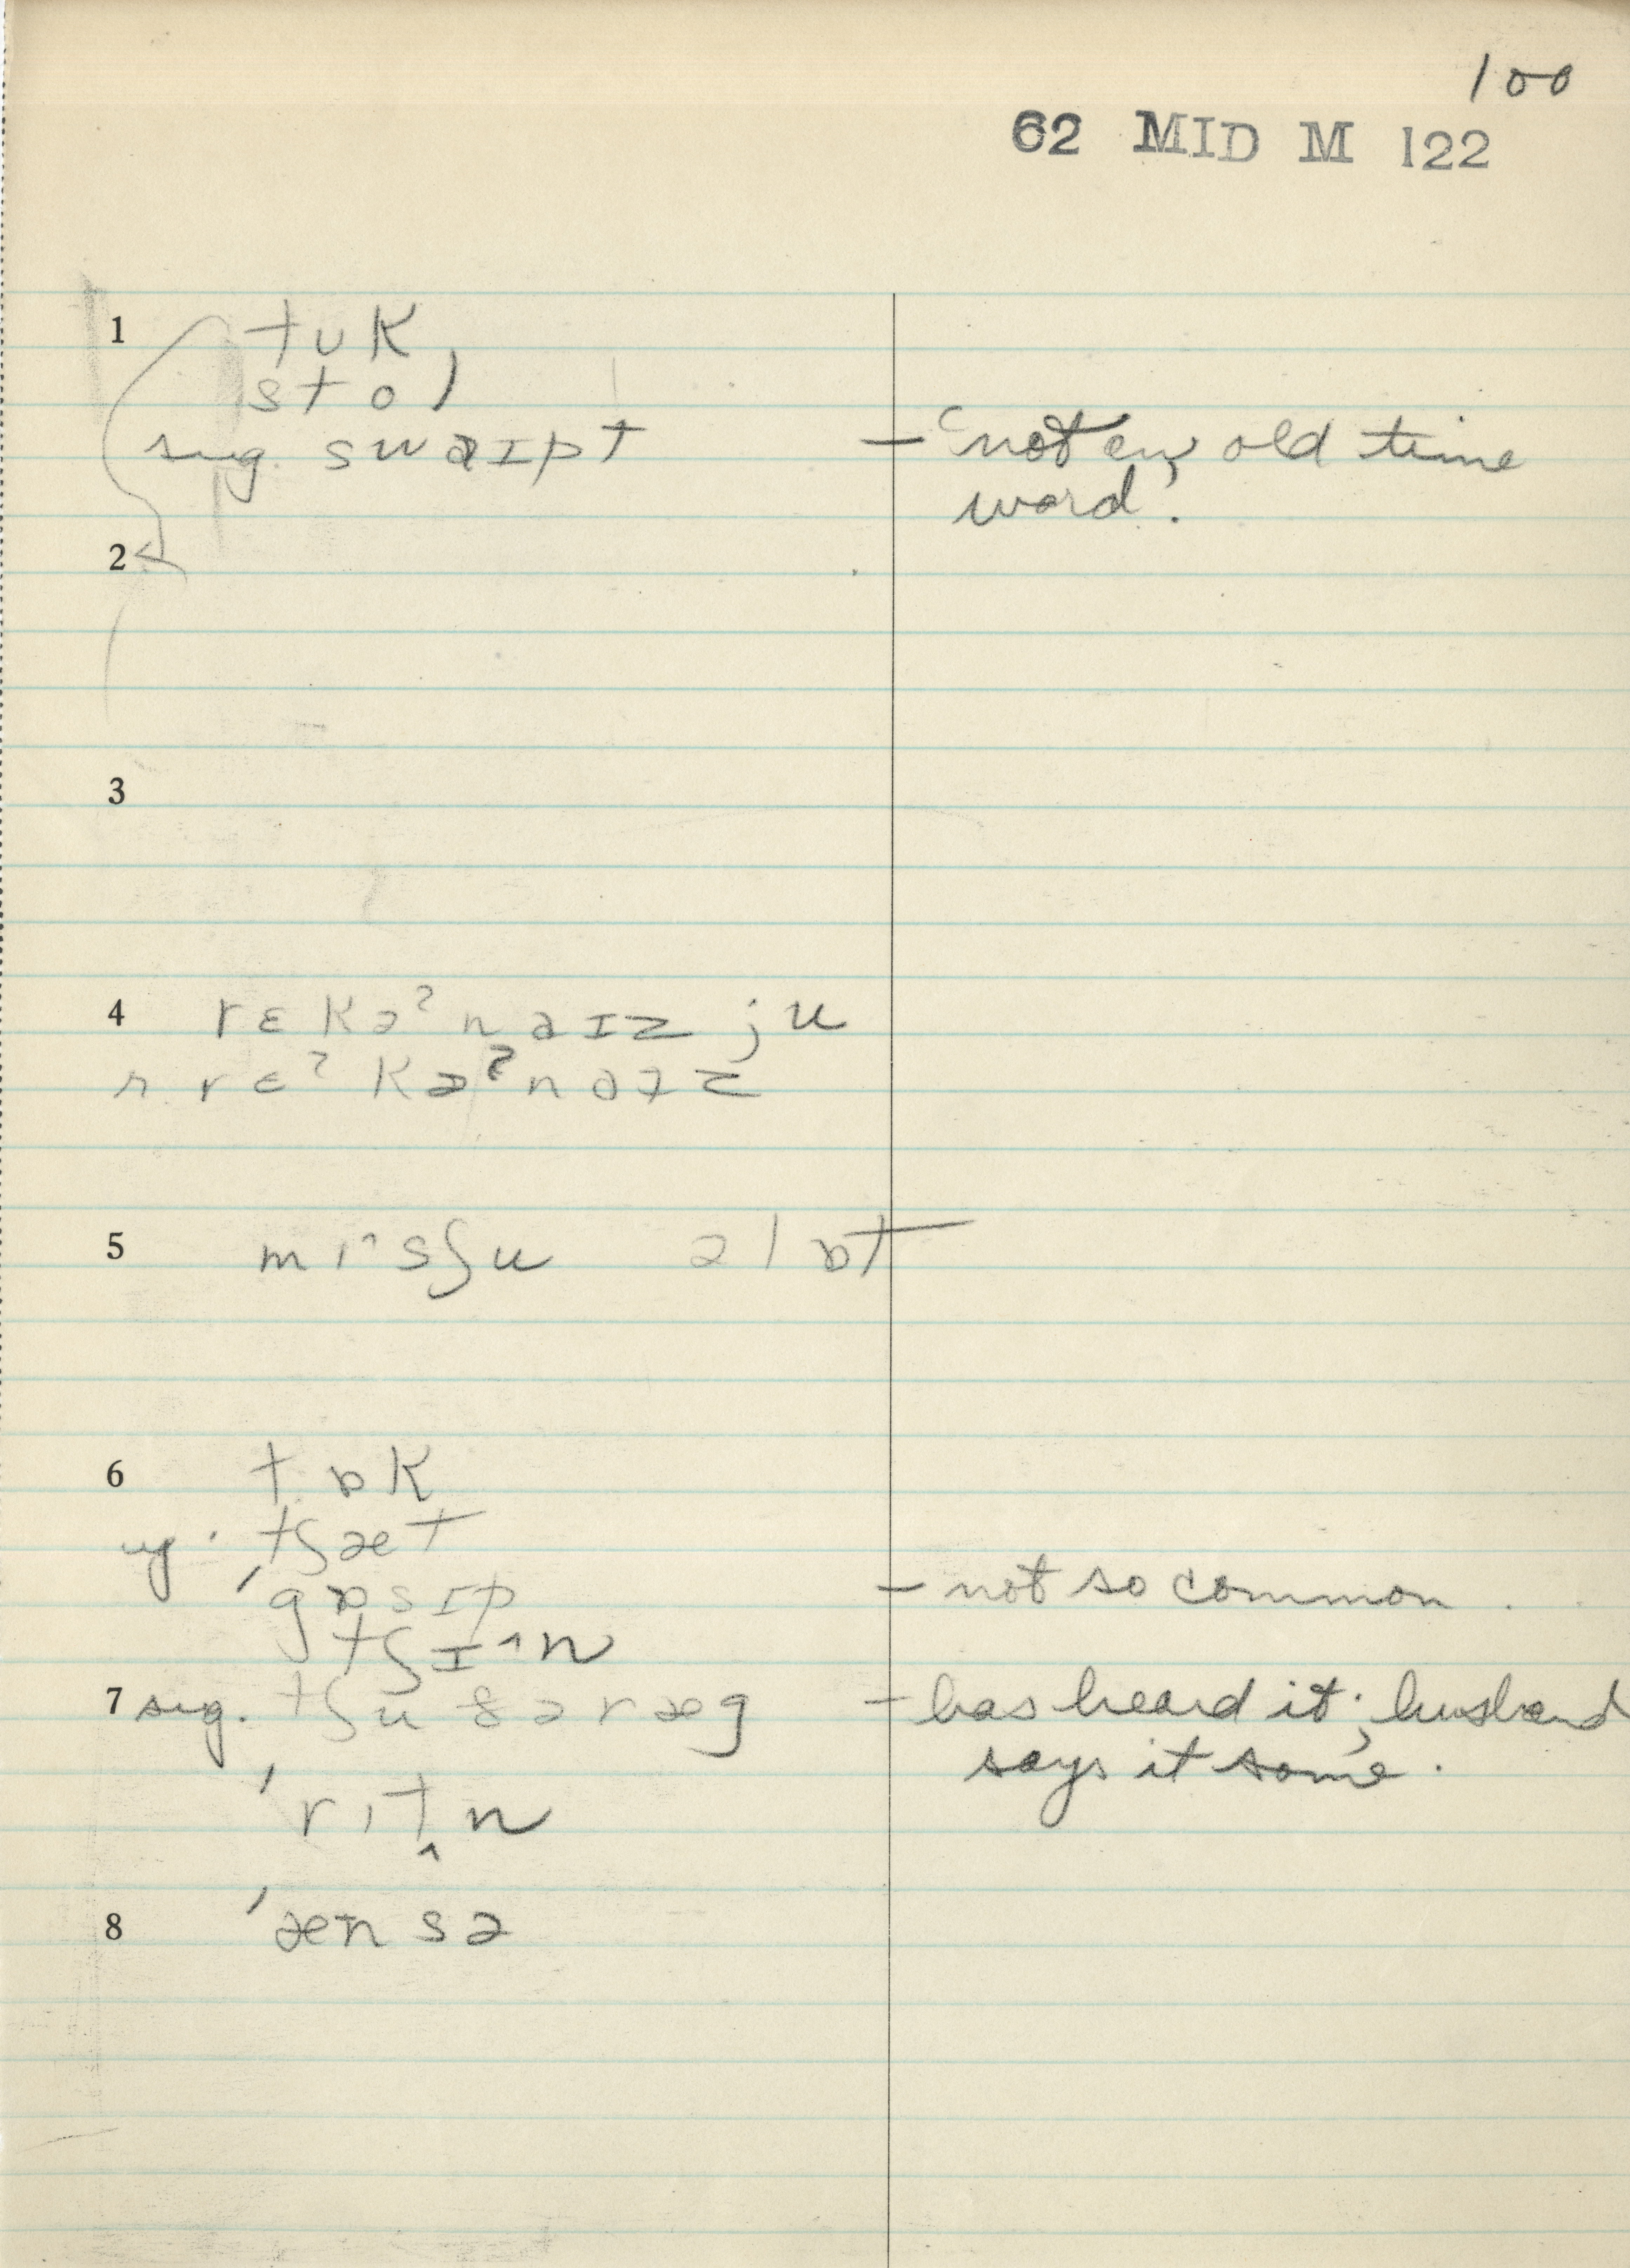 100
62 MID M 122
1 tʊk
stol
sug. swaɪpt – "not an old time
word".
2
3
4 rɛkəˀnaɪz ju
r. rɛˀkəˀnaɪz
5 mɪ^sʃu əlɒt
6 tɒk
ug. tʃæt
ˈgɒsɪp – not so common.
tʃɪ^n
7 sug. tʃu ðə ræg – has heard it; husband
says it some.
ˈrɪtn
8 ˈænsə